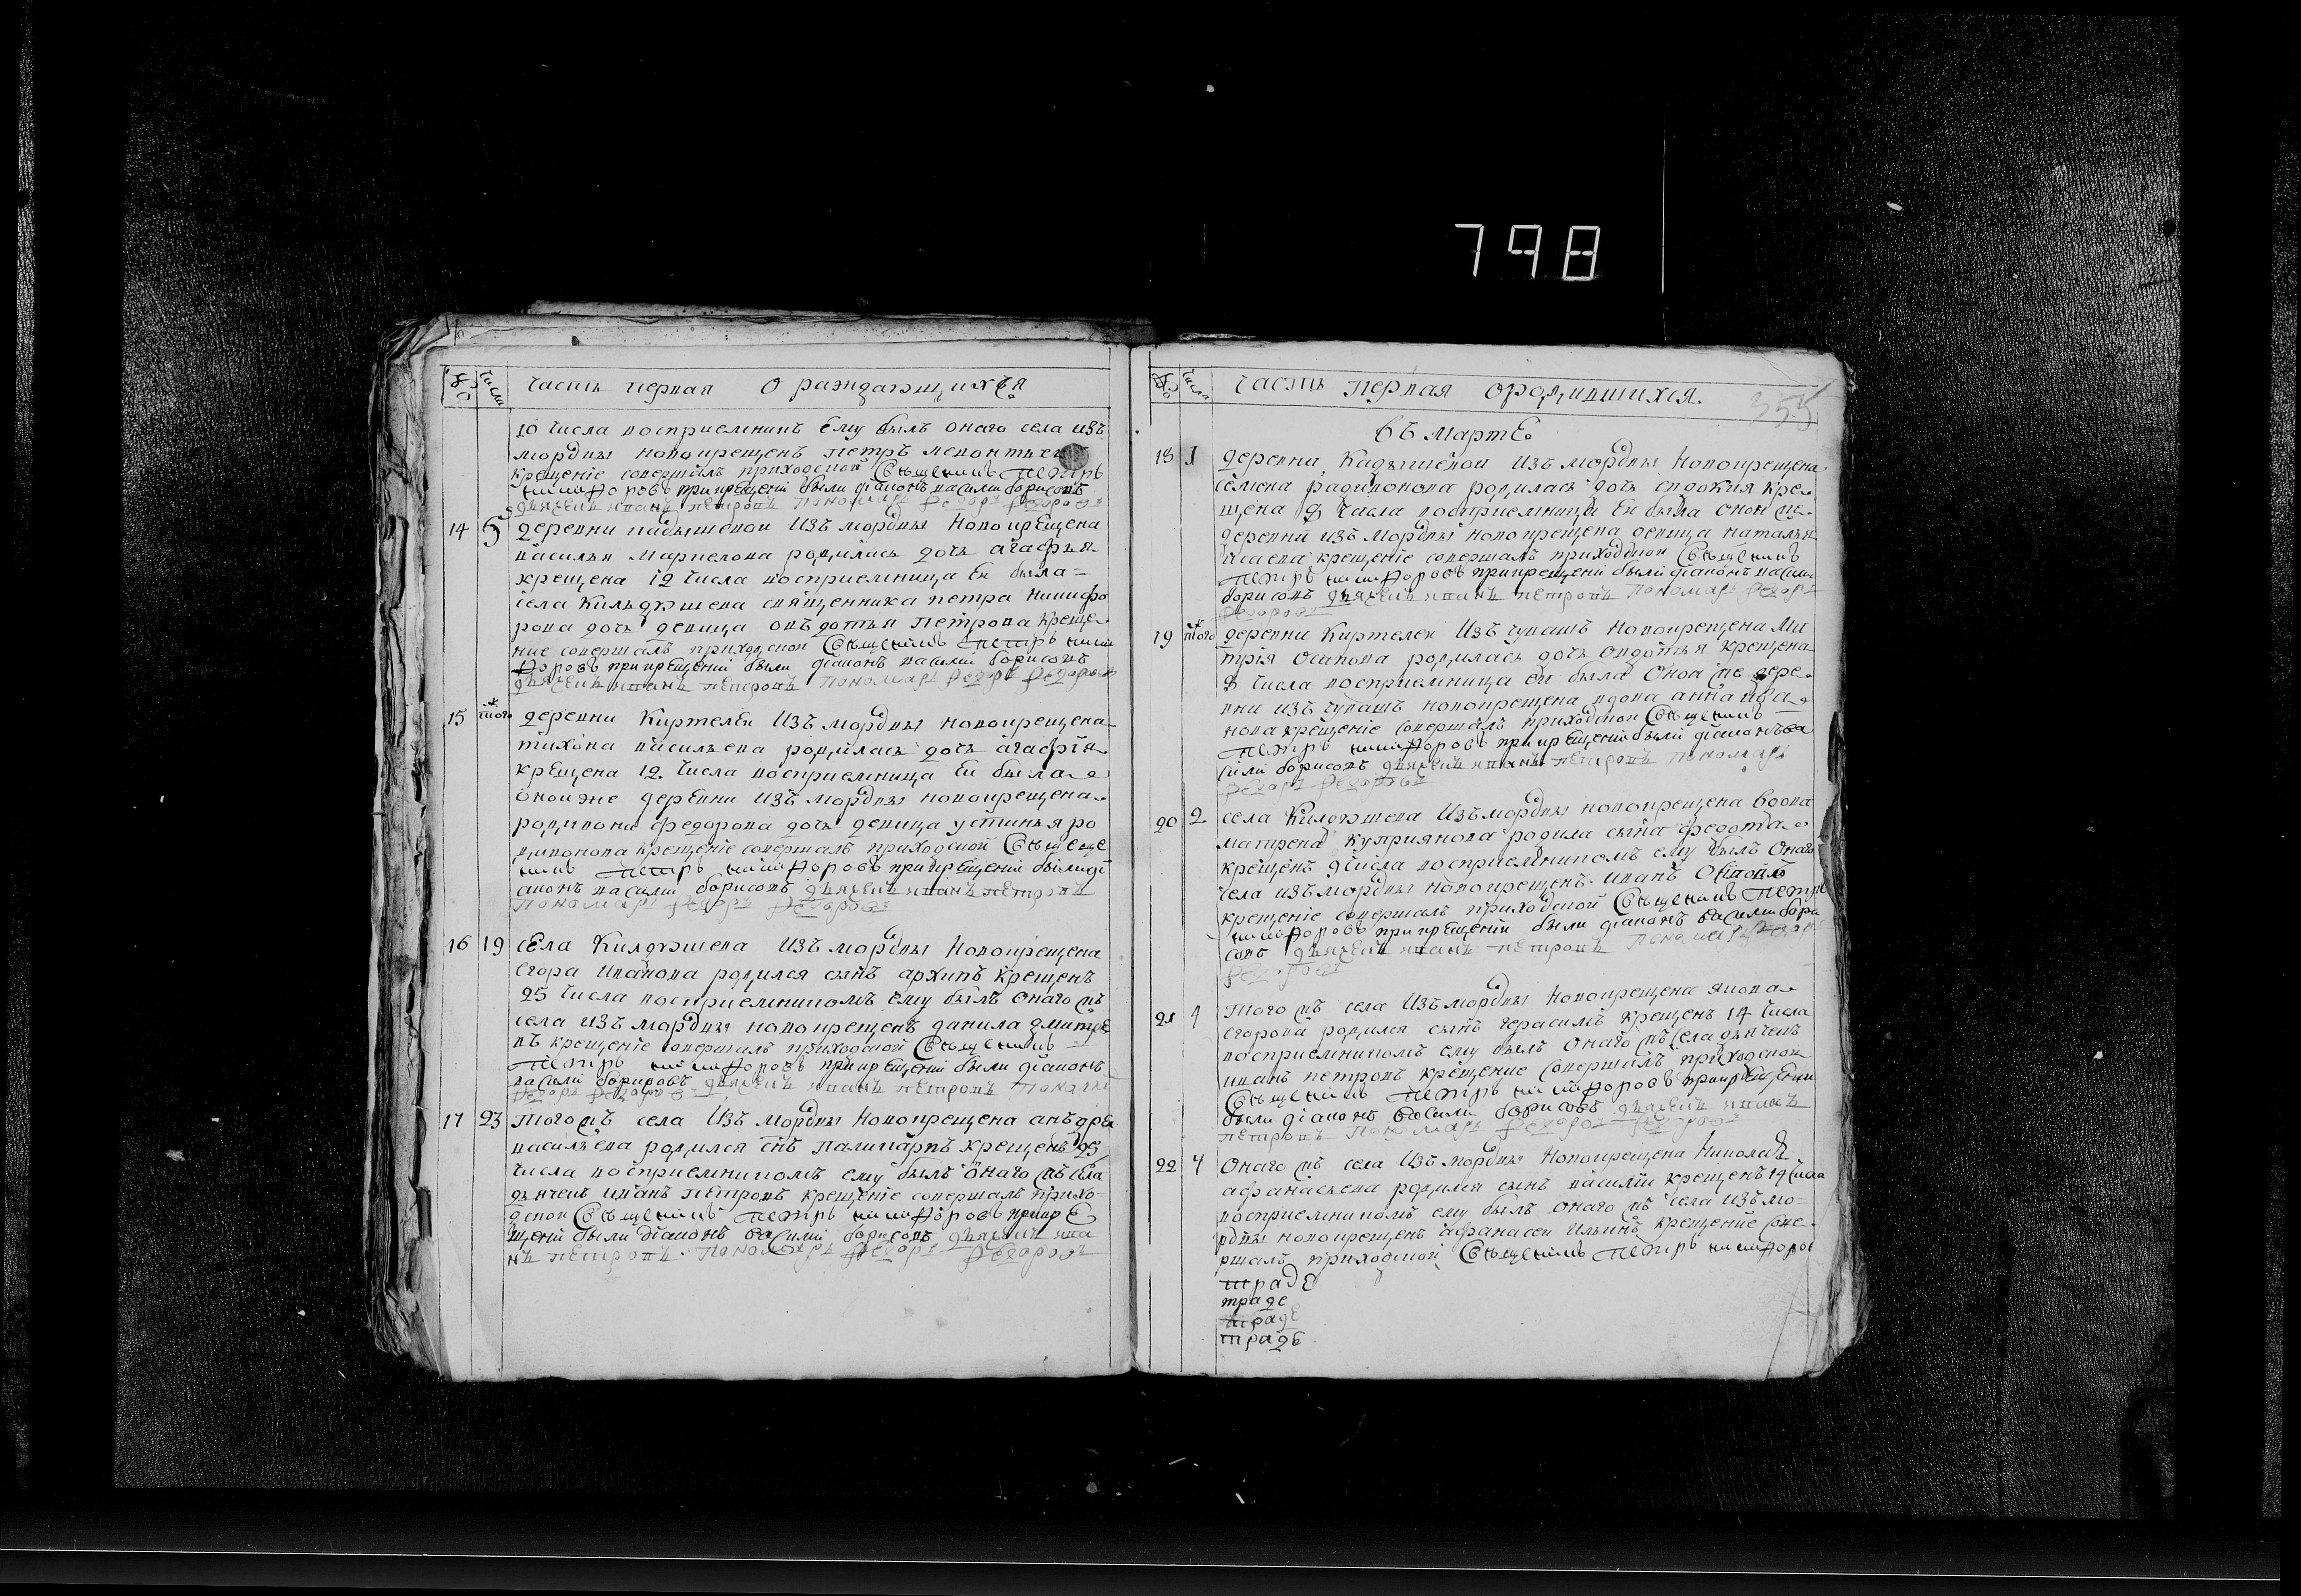 798
№ числа часть первая О раждающихся
10 числа восприемникъ ему былъ онаго села изъ
мордвы новокрещенъ петръ левонтьев
крещенїе совершалъ приходской Священникъ Петръ
никифоровъ при крещенїи были дїаконъ василий борисовъ
дьячекъ иванъ петровъ пономарь федоръ федоровъ
14 5 деревни кадышевой изъ мордвы новокрещена
василья маркелова родилась дочь агафья
крещена 12 числа восприемница ей была
села Кильдюшева священника петра никифо
рова дочь девица овдотья петрова креще
ние совершалъ приходской Священникъ петръ ники
форовъ при крещенїи были дїаконъ василий борисовъ
дьячекъ иванъ петровъ пономарь федоръ федоровъ
15 того ж деревни Киртелей изъ мордвы новокрещена
тихона васильева родилась дочь агафїя
крещена 12 числа восприемница ей была
оной же деревни изъ мордвы новокрещена
родивона федорова дочь девица устинья ро
дивонова крещенїе совершалъ приходской Священ
никъ Петръ никифоровъ при крещенїи были дї
аконъ василий борисовъ дьячекъ иванъ петровъ
пономарь федоръ федоровъ
16 19 села Килдюшева изъ мордвы новокрещена
егора иванова родился сынъ архипъ крещенъ
25 числа восприемникомъ ему былъ онаго жъ
села изъ мордвы новокрещенъ данила дмитре
въ крещенїе совершалъ приходской Священникъ
Петръ никифоровъ при крещенїи были дїаконъ
василий борисовъ дьячекъ иванъ петровъ пономарь
федоръ федоровъ
17 23 того жъ села изъ мордвы новокрещена анъдрея
васильева родился снъ паликарпъ крещенъ 25
числа восприемникомъ ему былъ онаго жъ села
дьячекъ иванъ петровъ крещенїе совершалъ прихо
дской Священникъ Петръ никифоровъ при кре
щенїи были дїаконъ василий борисовъ дьячекъ ива
нъ петровъ пономарь федоръ федоровъ
№ числа часть первая о родившихся 355
въ марте
18 1 деревни Кадышевой изъ мордвы новокрещена
семена радивонова родилась дочь евдокия кре
щена 8 числа восприемница ей была оной же
деревни изъ мордвы новокрещена девица наталья
исаева крещенїе совершалъ приходской Священникъ
Петръ никифоровъ при крещенїи были дїаконъ василий
борисовъ дьячекъ иванъ петровъ пономарь федоръ
федоровъ
19 того ж деревни Киртелей изъ чувашъ новокрещена ми
трїя осипова родилась дочь овдотья крещена
8 числа восприемница ей была оной же дере
вни изъ чувашъ новокрещена вдова анна ива
нова крещенїе совершалъ приходской Священникъ
Петръ никифоровъ при крещенїи были дїаконъ ва
силий борисовъ дьячекъ иванъ петровъ пономарь
федоръ федоровъ
20 2 села Килдюшева изъ мордвы новокрещена вдова
матрена куприянова родила сына федота
крещенъ 9 числа восприемникомъ ему былъ онаго
села изъ мордвы новокрещенъ иванъ осиповъ
крещенїе совершалъ приходской Священникъ Петръ
никифоровъ при крещенїи были дїаконъ василий бори
совъ дьячекъ иванъ петровъ пономарь федоръ
федоровъ
21 4 того жъ села изъ мордвы новокрещена якова
егорова родился сынъ герасимъ крещенъ 14 числа
восприемникомъ ему былъ онаго жъ села дьячекъ
иванъ петровъ крещение совершалъ приходской
Священникъ Петръ никифоровъ при крещении
были дїаконъ василий борисовъ дьячекъ иванъ
петровъ пономарь федоръ федоровъ
22 4 Онаго жъ села изъ мордвы новокрещена николая
афанасьева родился сынъ василий крещенъ 14 числа
восприемникомъ ему былъ онаго жъ села изъ мо
рдвы новокрещенъ афанасей ильинъ крещение сове
ршалъ приходской Священникъ Петръ никифоро
граде
граде
граде
граде